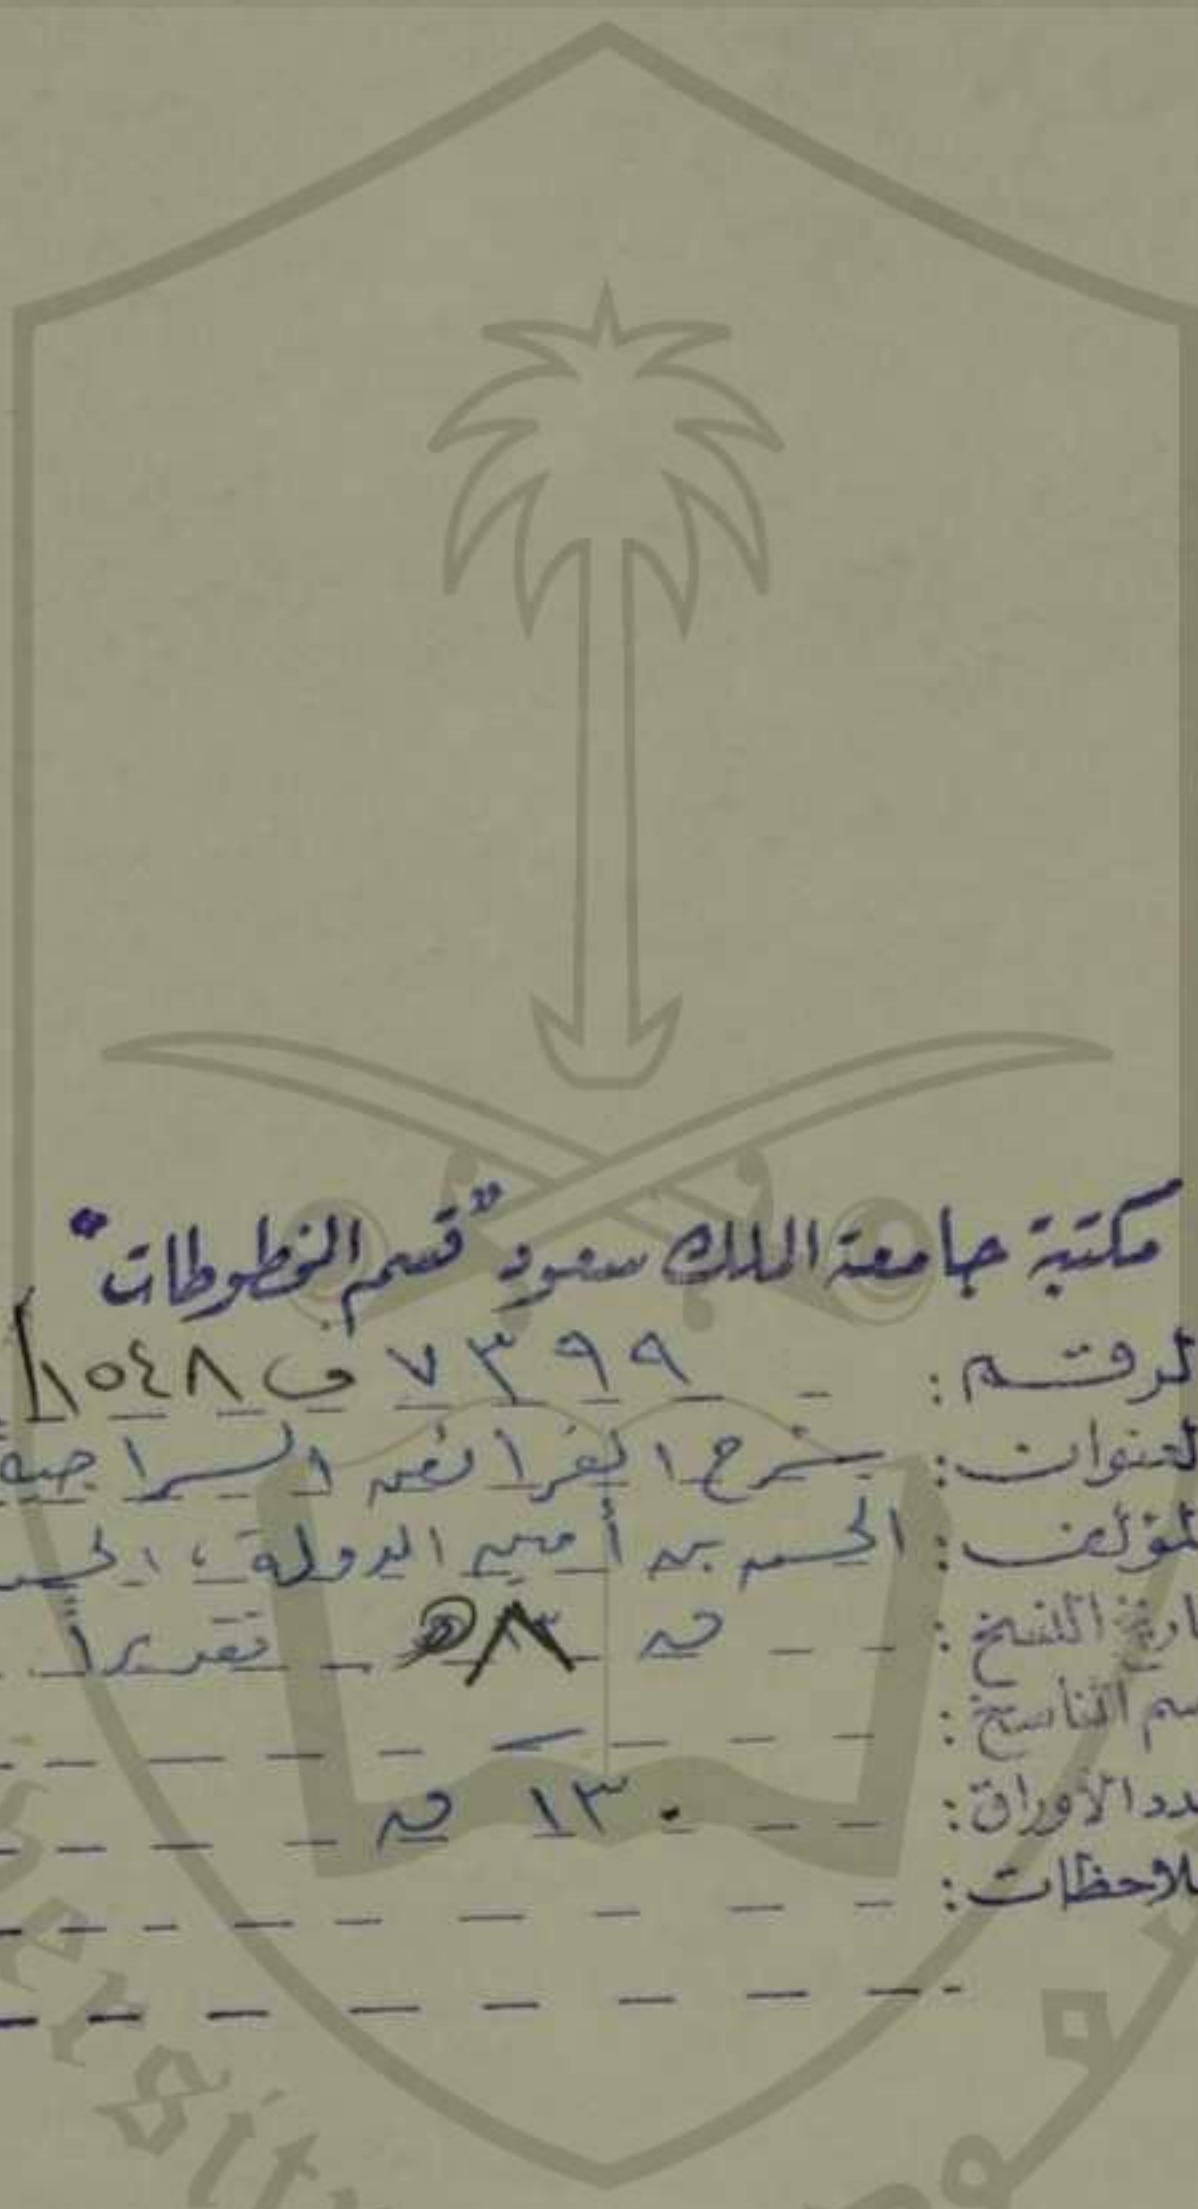 مكتبة جامعة الملك سعود "قسم المخطوطات"
الرقم: ٧٣٩٩ ف ١٥٤٨
العنوان: شرح الفرائض السراجية
المؤلف: الحسن بن أمين الدولة، الحسـ
تاريخ النسخ: ق ٨ هـ تقديراً
اسم الناسخ: ــ
عدد الأوراق: ١٣٠ ق
ملاحظات: